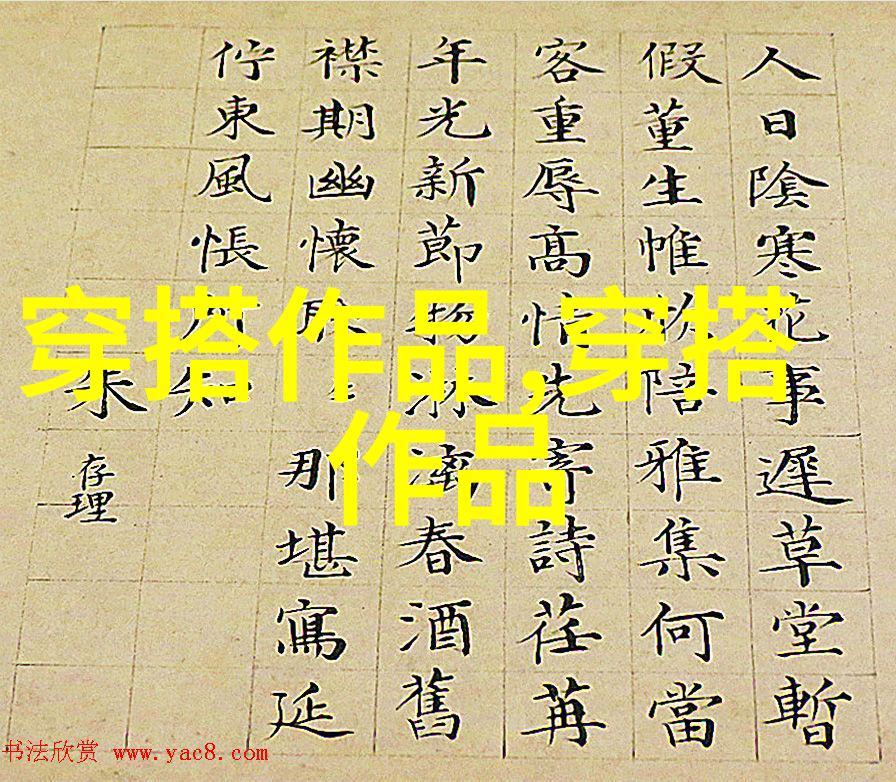 人日陰寒花事遲草堂暫
假董生帷欣陪雅集何當
客重辱高情先寄詩荏苒
年光新節物淋漓春酒舊
襟期幽懷耿〻那堪寫延
佇東風悵所知
朱
存理
穿搭作品,穿搭
作品
书法欣赏 www.yac8.com